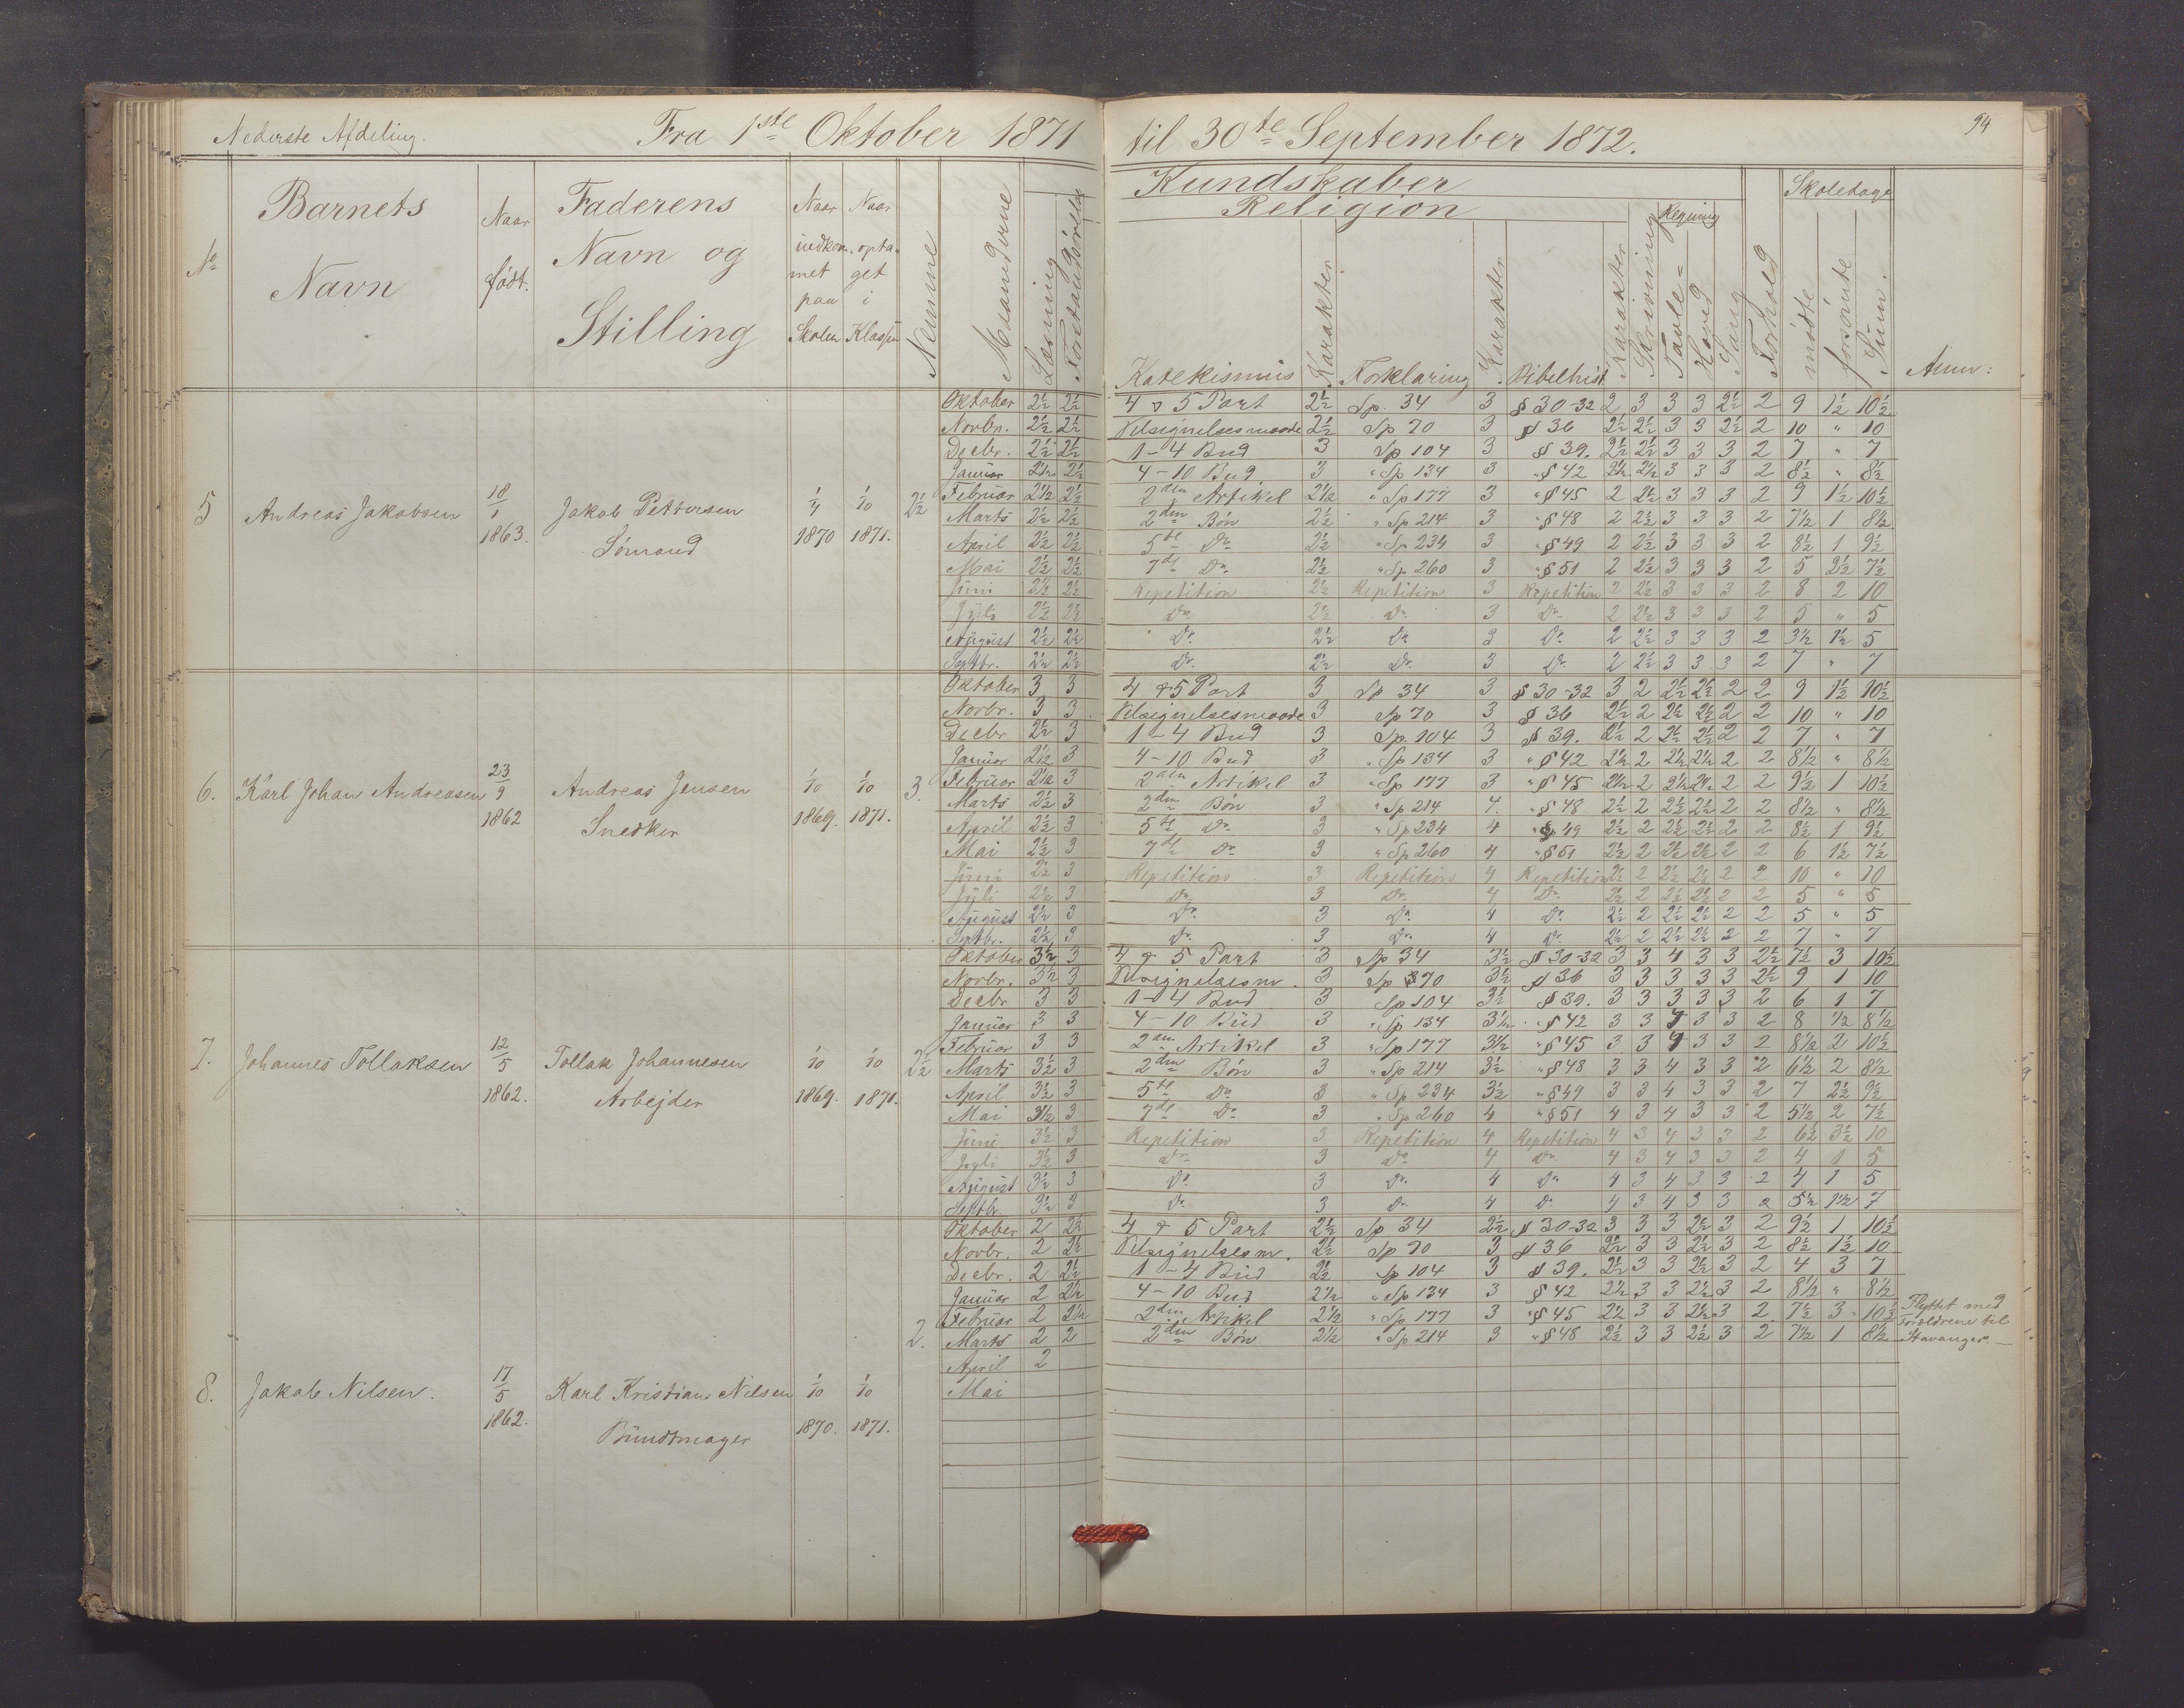 Nederste Afdeling. Fra 1ste Oktober 1871 til 30te September 1872. 94
No Barnets Navn Naar født. Faderens Navn og Stilling Naar indkommet paa Skolen Naar optaget i Klassen Nemme Maanderne Læsning Forstandsøvelse Kundskaber Religion Katekismus Karakter Forklaring Karakter Bibelhist. Karakter Skrivning Regning Tavle= Hoved Sang Forhold Skoledage mødte forsømte Sum. Anm:
5 Andreas Jakobsen 18/1 1863. Jakob Pettersen Sömand 1/4 1870 1/10 1871. 2½
Oktober 2½ 2½ 4 & 5 Part 2½ Sp. 34 3 § 30-32 2 3 3 3 2½ 2 9 1½ 10½
Novbr. 2½ 2½ Velsignelsesmaade 2½ Sp 70 3 § 36 2½ 2½ 3 3 2½ 2 10 " 10
Decbr. 2½ 2½ 1-4 Bud 3 Sp 104 3 § 39. 2½ 2½ 3 3 3 2 7 " 7
Januar 2½ 2½ 4-10 Bud 3 " Sp 134 3 " § 42 2½ 2½ 3 3 3 2 8½ " 8½
Februar 2½ 2½ 2den Artikel 2½ " Sp 177 3 " § 45 2 2½ 3 3 3 2 9 1½ 10½
Marts 2½ 2½ 2den Bön 2½ " Sp 214 3 " § 48 2 2½ 3 3 3 2 7½ 1 8½
April 2½ 2½ 5te Do 2½ " Sp 234 3 " § 49 2 2½ 3 3 3 2 8½ 1 9½
Mai 2½ 2½ 7de Do 2½ " Sp 260 3 " § 51 2 2½ 3 3 3 2 5 2½ 7½
Juni 2½ 2½ Repetition 2½ Repetition 3 Repetition 2 2½ 3 3 3 2 8 2 10
Jyli 2½ 2½ Do 2½ Do 3 Do 2 2½ 3 3 3 2 5 " 5
August 2½ 2½ Do 2½ Do 3 Do 2 2½ 3 3 3 2 3½ 1½ 5
Septbr. 2½ 2½ Do 2½ Do 3 Do 2 2½ 3 3 3 2 7 " 7
6. Karl Johan Andreasen 23/9 1862 Andreas Jensen Snedker 1/10 1869. 1/10 1871. 3.
Oktober 3 3 4 & 5 Part 3 Sp 34 3 § 30-32 3 2 2½ 2½ 2 2 9 1½ 10½
Novbr. 3 3 Velsignelsesmaade 3 Sp 70 3 § 36 2½ 2 2½ 2½ 2 2 10 " 10
Decbr 2½ 3 1-4 Bud 3 Sp. 104 3 § 39. 2½ 2 2½ 2½ 2 2 7 " 7
Januar 2½ 3 4-10 Bud 3 " Sp 134 3 " § 42 2½ 2 2½ 2½ 2 2 8½ " 8½
Februar 2½ 3 2den Artikel 3 " Sp 177 3 " § 45 2½ 2 2½ 2½ 2 2 9½ 1 10½
Marts 2½ 3 2den Bön 3 " Sp 214 4. " § 48 2½ 2 2½ 2½ 2 2 8½ " 8½
April 2½ 3 5te Do 3 " Sp 234 4 " § 49 2½ 2 2½ 2½ 2 2 8½ 1 9½
Mai 2½ 3 7de Do 3 " Sp 260 4 " § 51 2½ 2 2½ 2½ 2 2 6 1½ 7½
Juni 2½ 3 Repetition 3 Repetition 4 Repetition 2½ 2 2½ 2½ 2 2 10 " 10
Jyli 2½ 3 Do 3 Do 4 Do 2½ 2 2½ 2½ 2 2 5 " 5
August 2½ 3 Do 3 Do 4 Do 2½ 2 2½ 2½ 2 2 5 " 5
Septbr. 2½ 3 Do 3 Do 4 Do 2½ 2 2½ 2½ 2 2 7 " 7
7. Johannes Tollaksen 12/5 1862. Tollak Johannesen Arbejder 1/10 1869. 1/10 1871. 2½
Oktober 3½ 3 4 & 5 Part 3 Sp 34 3½ § 30-32 3 3 4 3 3 2½ 7½ 3 10½
Novbr. 3½ 3 Velsignelsesm. 3 Sp 70 3½ § 36 3 3 3 3 3 2½ 9 1 10
Decbr 3 3 1-4 Bud 3 Sp 104 3½ § 39. 3 3 3 3 3 2 6 1 7
Januar 3 3 4-10 Bud 3 " Sp 134 3½ " § 42 3 3 4 3 3 2 8 ½ 8½
Februar 3 3 2den Artikel 3 " Sp 177 3½ " § 45 3 3 4 3 3 2 8½ 2 10½
Marts 3½ 3 2den Bön 3 " Sp 214 3½ " § 48 3 3 4 3 3 2 6½ 2 8½
April 3½ 3 5te Do 3 " Sp 234 3½ " § 49 3 3 4 3 3 2 7 2½ 9½
Mai 3½ 3 7de Do 3 " Sp 260 4 " § 51 4 3 4 3 3 2 5½ 2 7½
Juni 3½ 3 Repetition 3 Repetition 4 Repetition 4 3 4 3 3 2 6½ 3½ 10
Jyli 3½ 3 Do 3 Do 4 Do 4 3 4 3 3 2 4 1 5
August 3½ 3 Do 3 Do 4 Do 4 3 4 3 3 2 4 1 5
Septbr 3½ 3 Do 3 Do 4 Do 4 3 4 3 3 2 5½ 1½ 7
8. Jakob Nilsen. 17/5 1862. Karl Kristian Nilsen Bundtmager 1/10 1870. 1/10 1871. 2.
Oktober 2 2½ 4 & 5 Part 2½ Sp 34 2½ § 30-32 3 3 3 2½ 3 2 9½ 1 10½
Novbr. 2 2½ Velsignelsesm. 2½ Sp 70 3 § 36 2½ 3 3 2½ 3 2 8½ 1½ 10
Decbr. 2 2½ 1-4 Bud 2½ Sp 104 3 § 39. 2½ 3 3 2½ 3 2 4 3 7
Januar 2 2½ 4-10 Bud 2½ " Sp 134 3 § 42 2½ 3 3 2½ 3 2 8½ " 8½
Februar 2 2½ 2den Artikel 2½ " Sp 177 3 " § 45 2½ 3 3 2½ 3 2 7½ 3 10½ Flyttet med
Marts 2 2 2den Bön 2½ " Sp 214 3 " § 48 2½ 3 3 2½ 3 2 7½ 1 8½ Forældrene til
April 2 Stavanger.
Mai